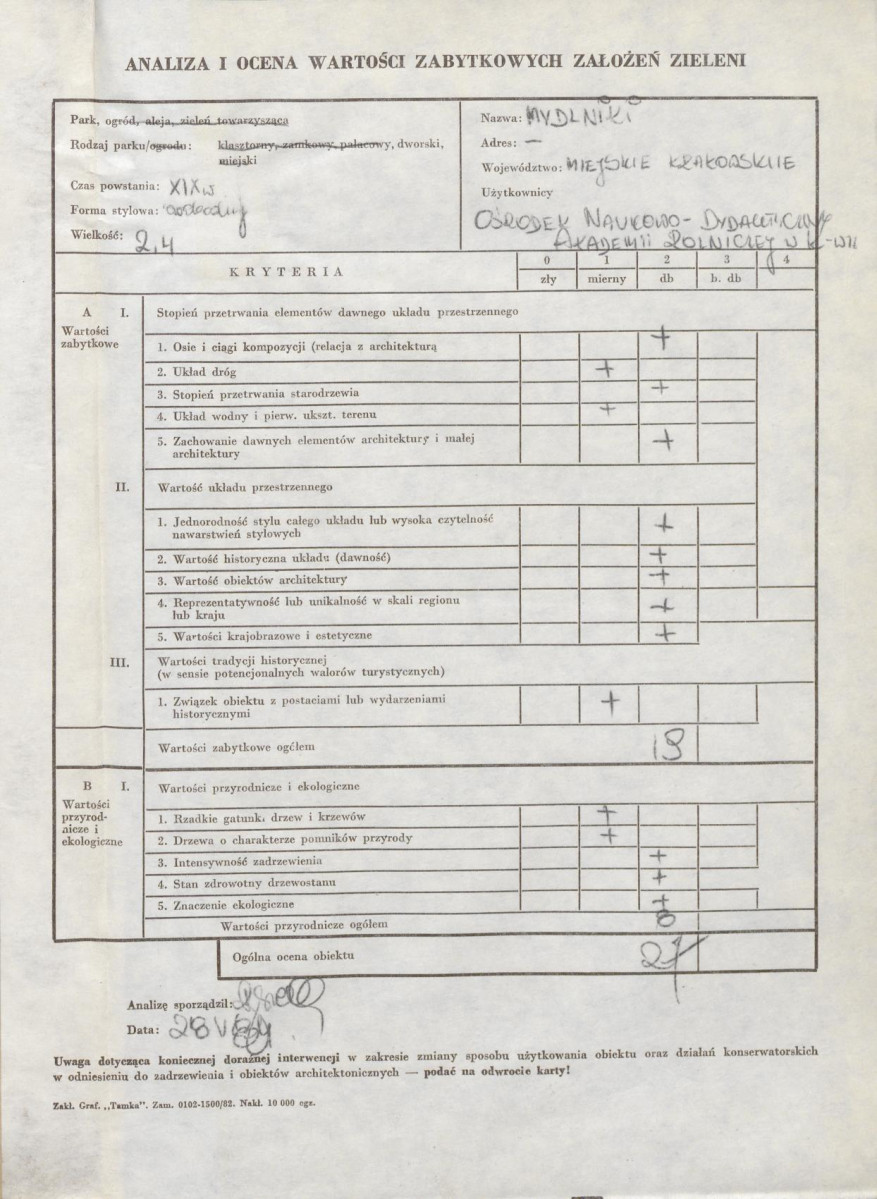 ANALIZA I OCENA WARTOŚCI ZABYTKOWYCH ZAŁOŻEŃ ZIELENI
Park, ogród, aleja, zieleń towarzysząca
Rodzaj parku/ogrodu: klasztorny, zamkowy, pałacowy, dworski,
miejski
Czas powstania: XIX w
Forma stylowa:
Wielkość: 2,4
Nazwa: MYDLNIKI
Adres: —
Województwo: MIEJSKIE KRAKOWSKIE
Użytkownicy
OŚRODEK NAUKOWO-DYDAKTYCZNY
AKADEMII ROLNICZEJ W K-WIE
KRYTERIA
0 1 2 3 4
zły mierny db b. db
A I. Stopień przetrwania elementów dawnego układu przestrzennego
Wartości
zabytkowe
1. Osie i ciągi kompozycji (relacja z architekturą +
2. Układ dróg +
3. Stopień przetrwania starodrzewia +
4. Układ wodny i pierw. ukszt. terenu +
5. Zachowanie dawnych elementów architektury i małej +
architektury
II. Wartość układu przestrzennego
1. Jednorodność stylu całego układu lub wysoka czytelność +
nawarstwień stylowych
2. Wartość historyczna układu (dawność) +
3. Wartość obiektów architektury +
4. Reprezentatywność lub unikalność w skali regionu +
lub kraju
5. Wartości krajobrazowe i estetyczne +
III. Wartości tradycji historycznej
(w sensie potencjonalnych walorów turystycznych)
1. Związek obiektu z postaciami lub wydarzeniami +
historycznymi
Wartości zabytkowe ogółem 19
B I. Wartości przyrodnicze i ekologiczne
Wartości
przyrod-
nicze i
ekologiczne
1. Rzadkie gatunki drzew i krzewów +
2. Drzewa o charakterze pomników przyrody +
3. Intensywność zadrzewienia +
4. Stan zdrowotny drzewostanu +
5. Znaczenie ekologiczne +
Wartości przyrodnicze ogółem 8
Ogólna ocena obiektu 27
Analizę sporządził:
Data: 28 V 89
Uwaga dotycząca koniecznej doraźnej interwencji w zakresie zmiany sposobu użytkowania obiektu oraz działań konserwatorskich
w odniesieniu do zadrzewienia i obiektów architektonicznych — podać na odwrocie karty!
Zakł. Graf. „Tamka". Zam. 0102-1500/82. Nakł. 10 000 egz.